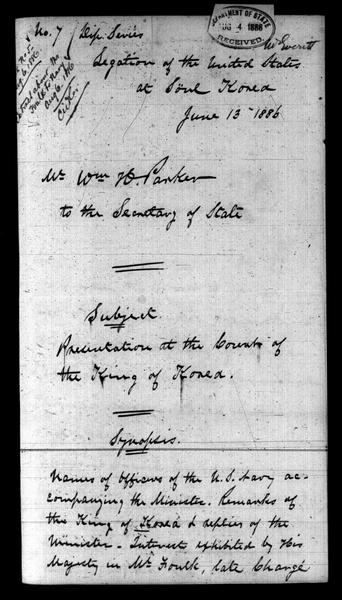 No. 7 Dip. Series
DEPARTMENT OF STATE
AUG 4 1886
RECEIVED.
Mr Everett
Legation of the United States
at Söul Korea
June 13 - 1886
Mr Wm H. Parker
to the Secretary of State
Subject.
Presentation at the Court of
the King of Korea.
Synopsis.
Names of Officers of the U.S. Navy ac-
companying the Minister. Remarks of
the King of Korea & replies of the
Minister - Interest exhibited by His
Majesty in Mr Foulk, late Chargé